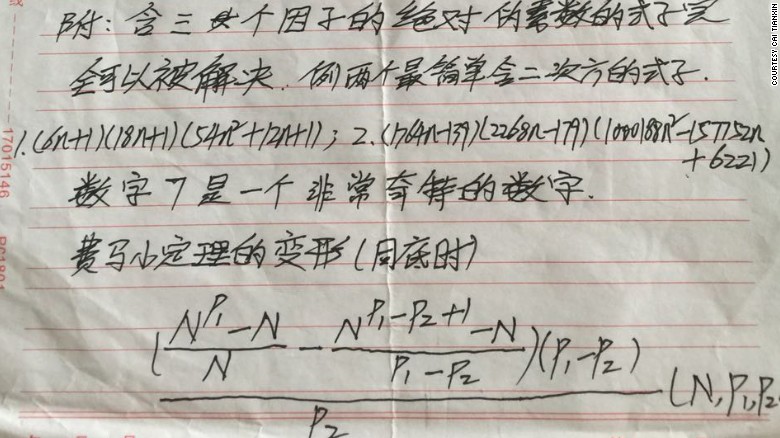 附：含三个因子的绝对伪素数的式子完
全可以被解决．例两个最简单含二次方的式子．
1.(6n+1)(18n+1)(54n²+12n+1)；2.(1764n-139)(2268n-179)(1000188n²-157752n
+6221)
数字7是一个非常奇特的数字．
费马小定理的变形(同底时)
(\frac{N^{P_1}-N}{N} - \frac{N^{P_1-P_2+1}-N}{P_1-P_2})(P_1-P_2)
P_2
(N,P_1,P_2
17015146
COURTESY CAI TIANXIN